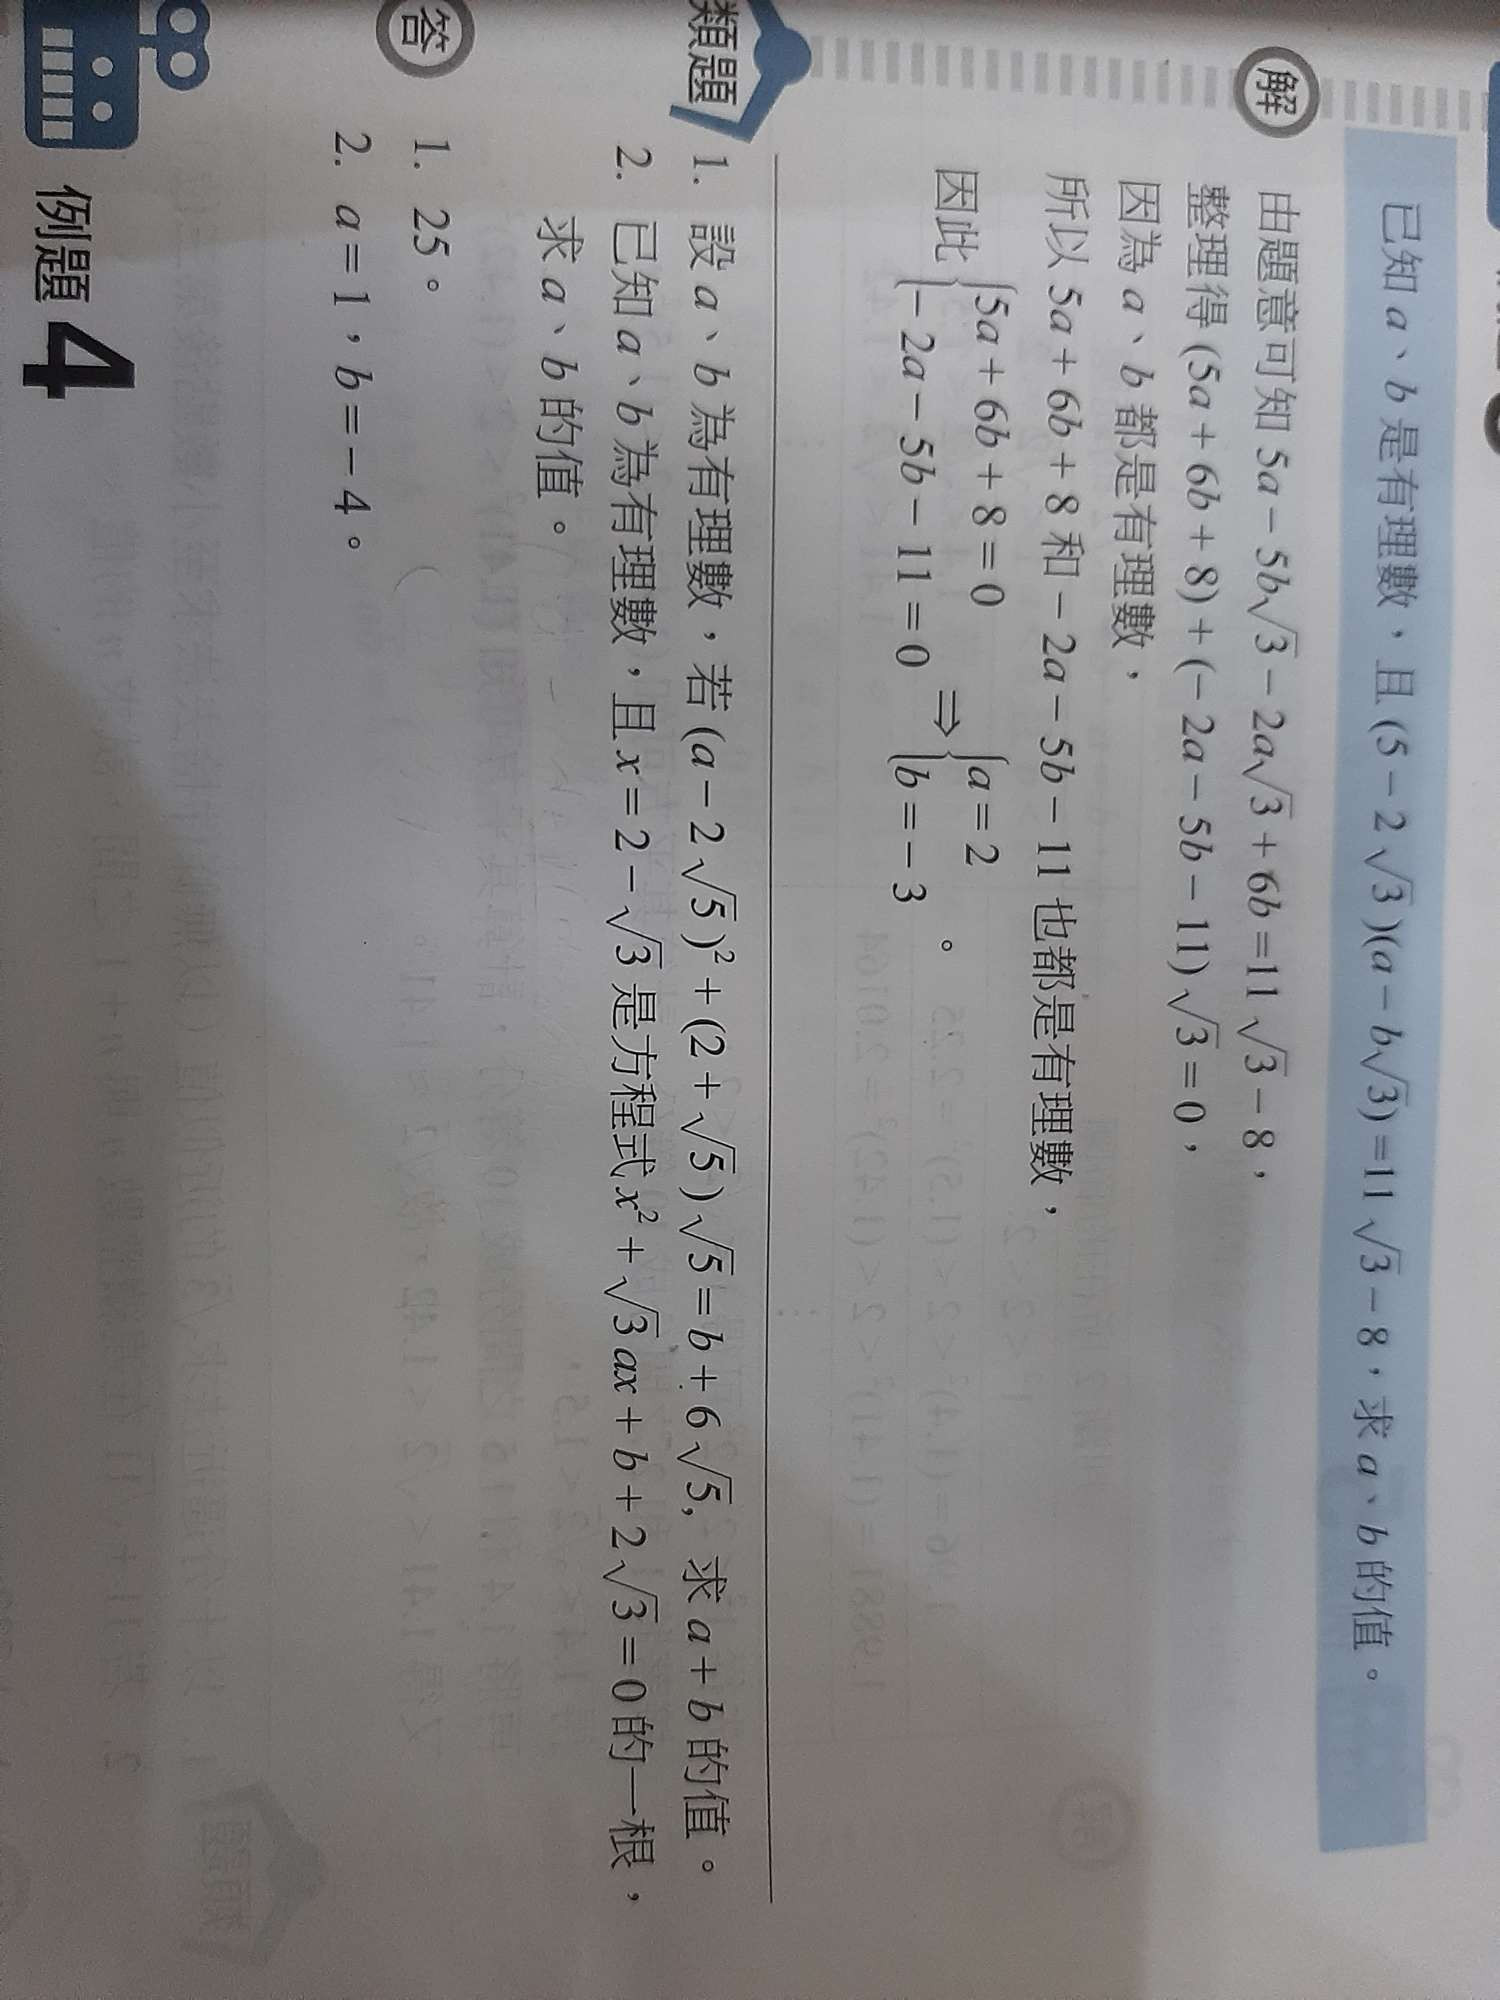 已知 a、b 是有理數，且 (5－2√3)(a－b√3)=11√3－8，求 a、b 的值。
解 由題意可知 5a－5b√3－2a√3＋6b=11√3－8，
整理得 (5a＋6b＋8)＋(－2a－5b－11)√3=0，
因為 a、b 都是有理數，
所以 5a＋6b＋8 和－2a－5b－11 也都是有理數，
因此 {5a＋6b＋8=0 ⇒ {a=2
{－2a－5b－11=0 {b=－3 。
類題 1. 設 a、b 為有理數，若 (a－2√5)²＋(2＋√5)√5=b＋6√5，求 a＋b 的值。
2. 已知 a、b 為有理數，且 x=2－√3 是方程式 x²＋√3ax＋b＋2√3=0 的一根，
求 a、b 的值。
答 1. 25。
2. a=1，b=－4。
例題 4